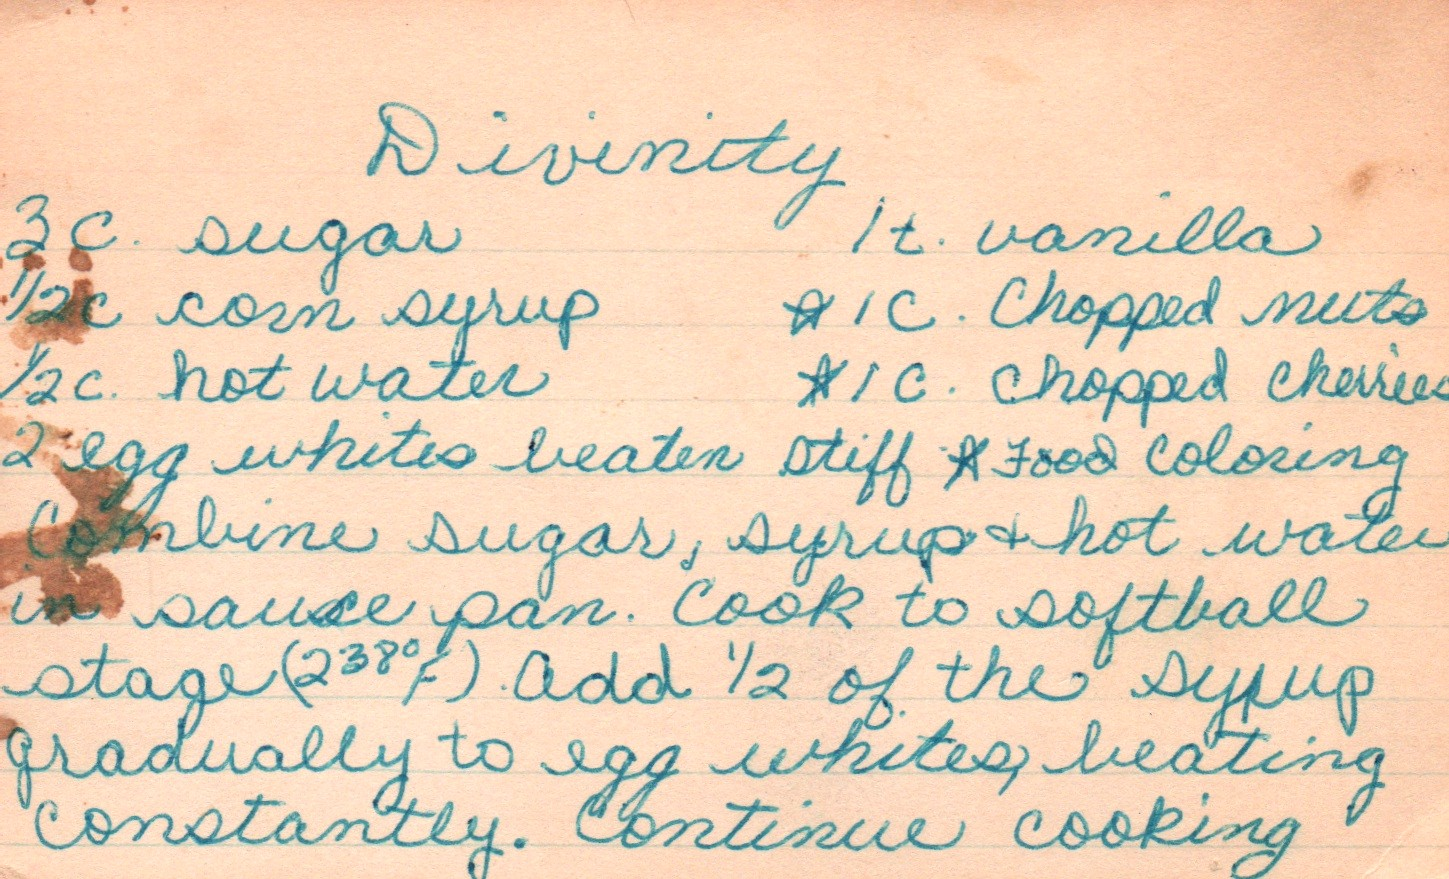 Divinity
3 c. sugar 1 t. vanilla
1/2 c corn syrup * 1 C. Chopped nuts
1/2 c. hot water * 1 C. chopped cherries
2 egg whites beaten stiff * Food Coloring
Combine sugar, syrup + hot water
in sauce pan. Cook to softball
stage (238°F). Add 1/2 of the syrup
gradually to egg whites, beating
constantly. Continue cooking